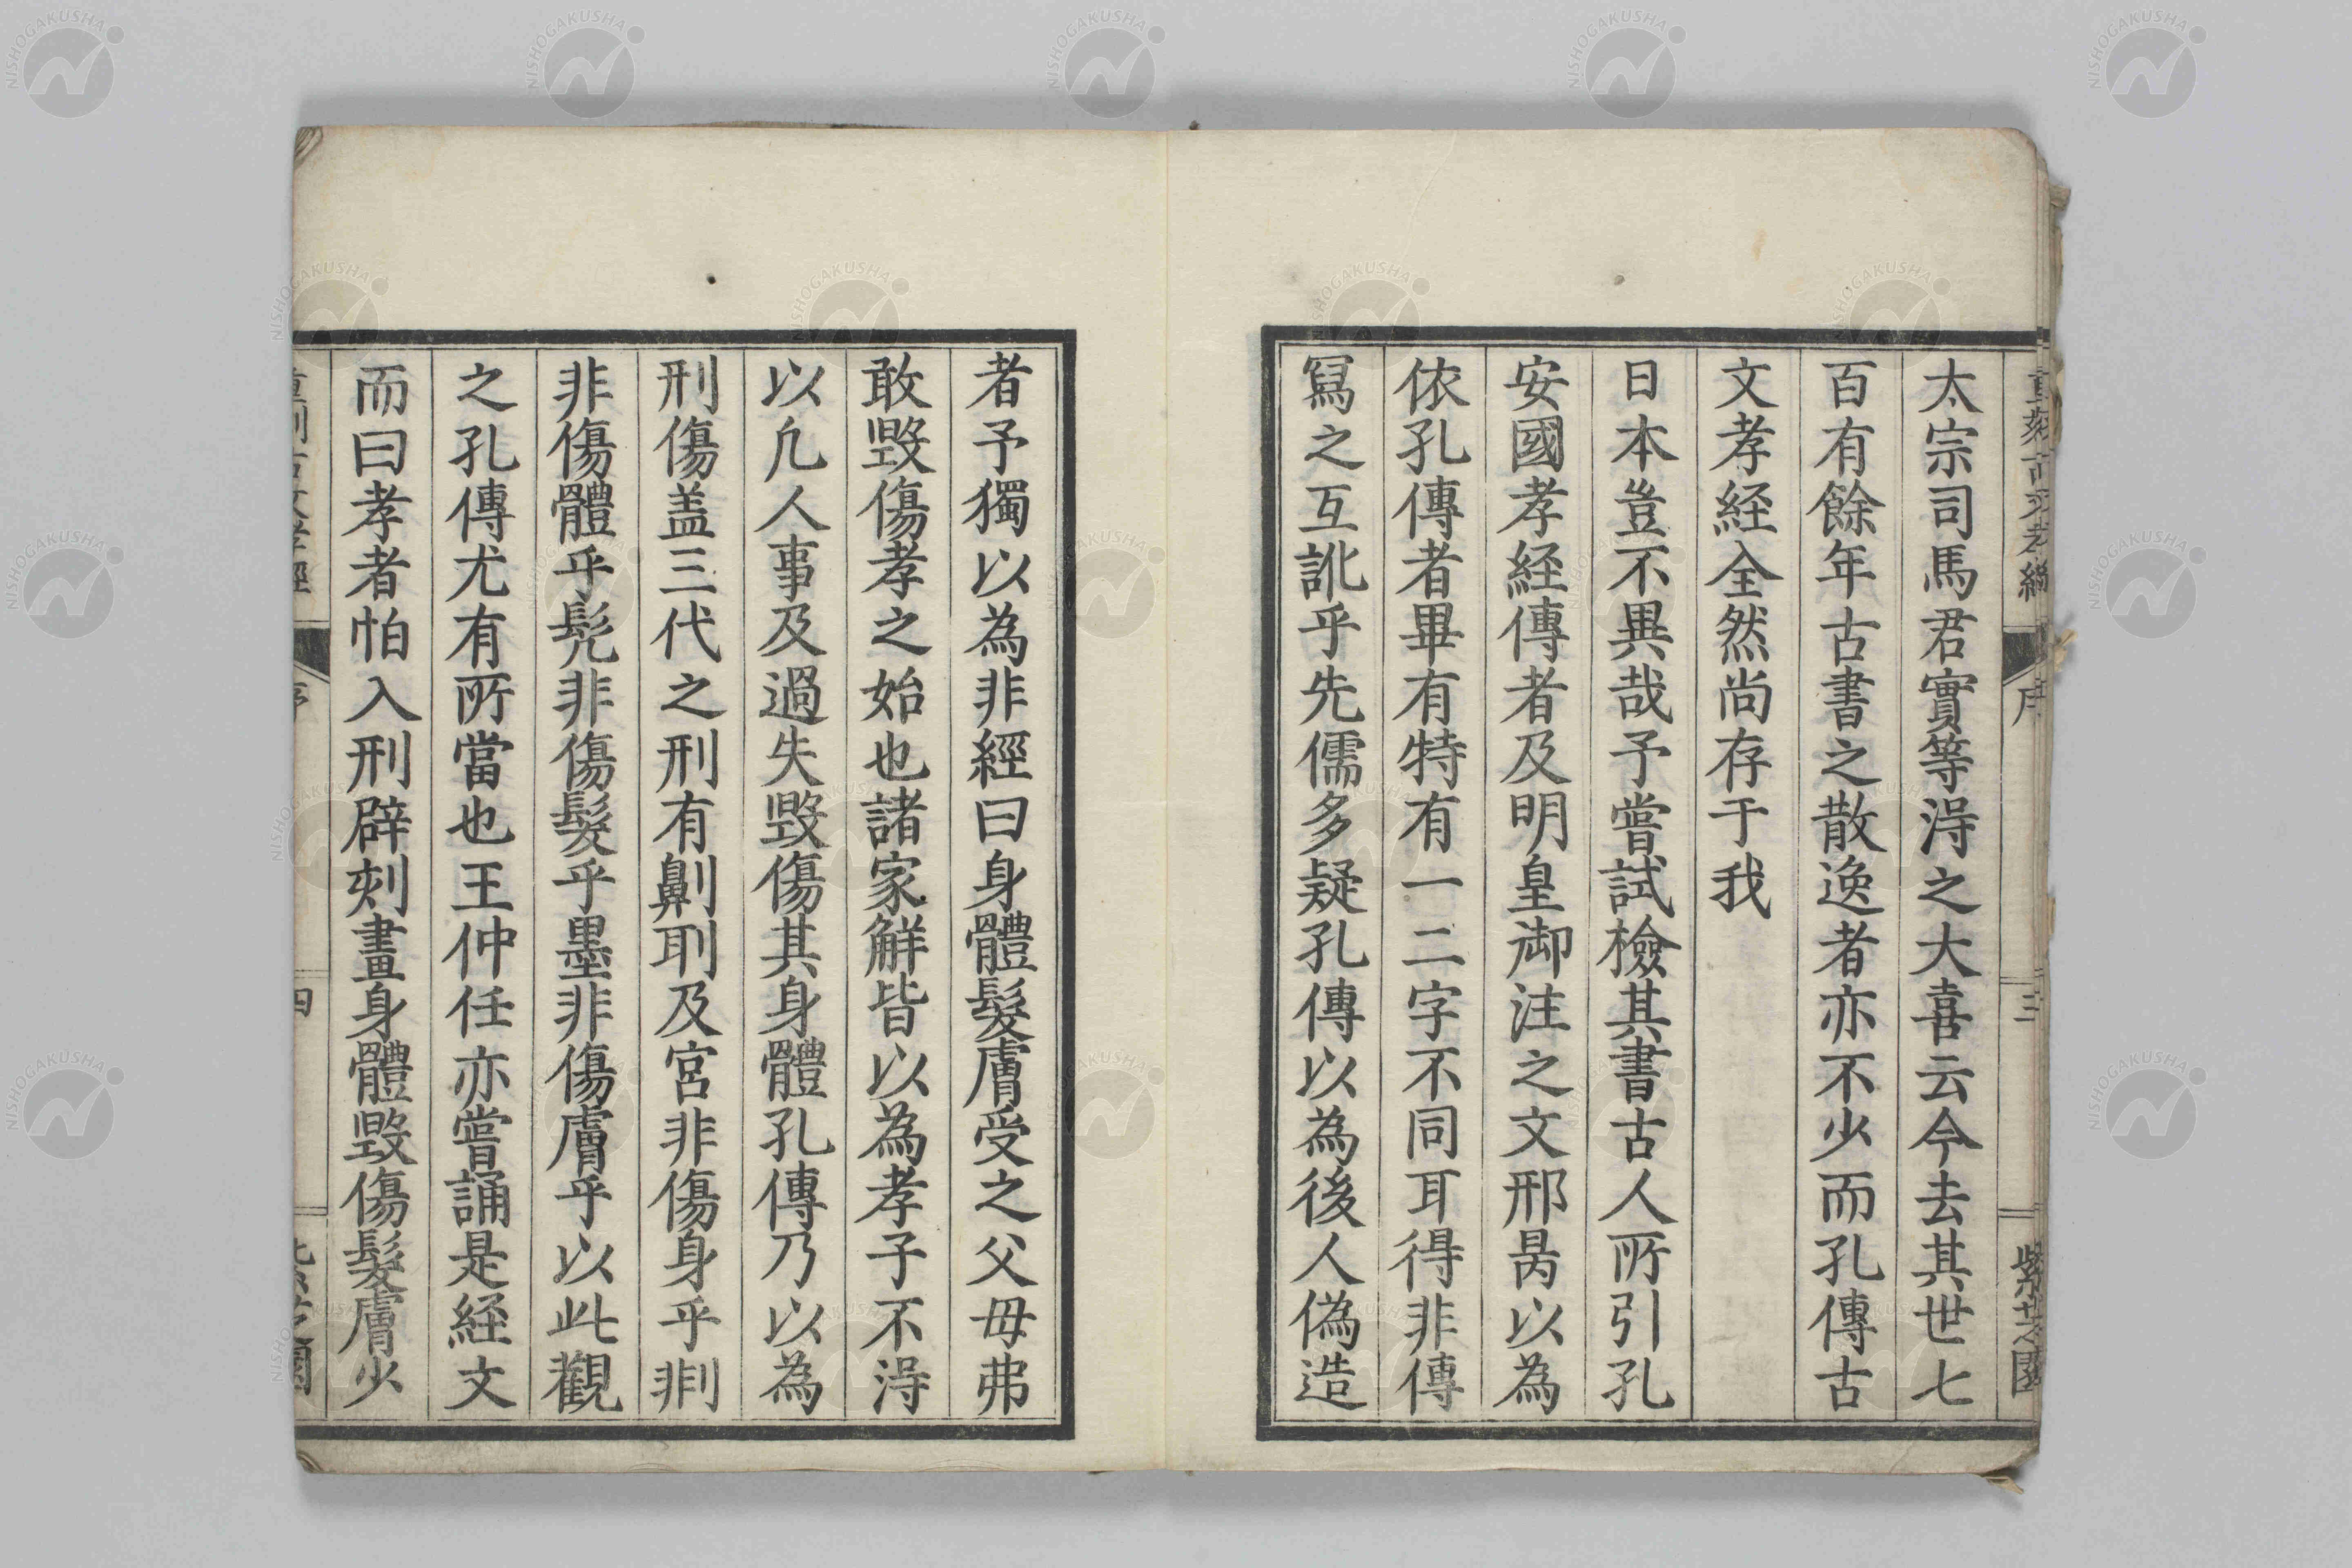 重刻古文孝經
序
三
紫芝園
太宗司馬君實等淂之大喜云今去其世七
百有餘年古書之散逸者亦不少而孔傳古
文孝経全然尚存于我
日本豈不異哉予嘗試檢其書古人所引孔
安國孝経傳者及明皇御注之文邢昺以為
依孔傳者畢有特有一二字不同耳得非傳
冩之互訛乎先儒多疑孔傳以為後人偽造
者予獨以為非經曰身體髮膚受之父母弗
敢毀傷孝之始也諸家解皆以為孝子不淂
以凡人事及過失毀傷其身體孔傳乃以為
刑傷盖三代之刑有劓刵及宮非傷身乎剕
非傷體乎髡非傷髮乎墨非傷膚乎以此觀
之孔傳尤有所當也王仲任亦嘗誦是経文
而曰孝者怕入刑辟刻畫身體毀傷髮膚少
序
四
NISHOGAKUSHA